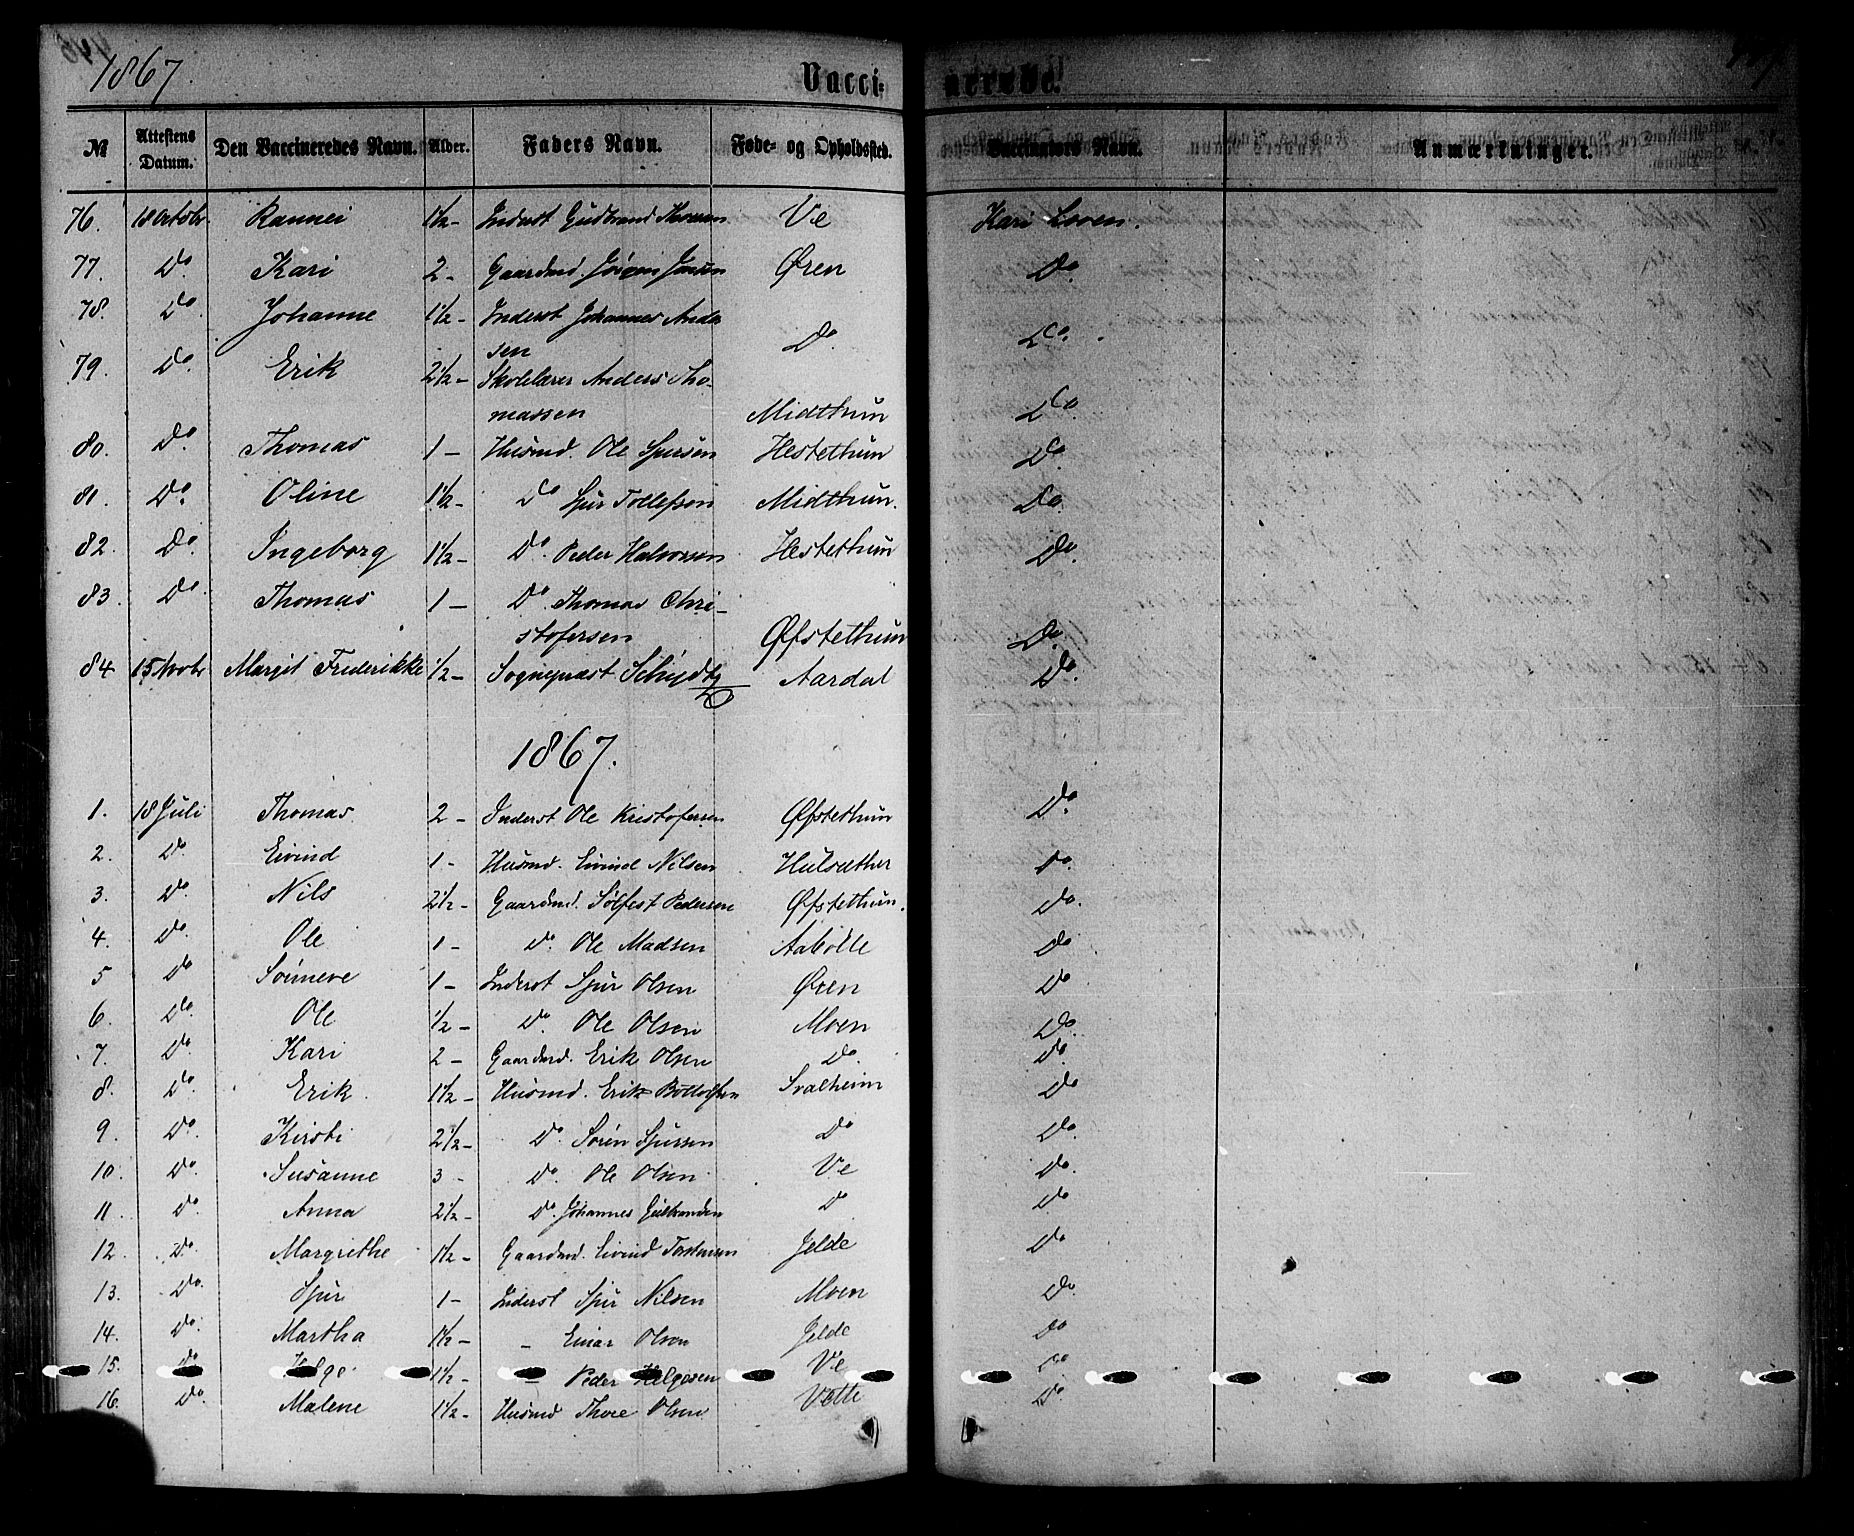 1867.
Vaccinerede.
№ Attestens Datum. Den Vaccineredes Navn. Alder. Faders Navn. Føde- og Opholdssted. Vaccinators Navn. Anmærkninger.
76. 18 Octobr. Rannei 1 1/2 - Inderst Gudbrand Thoresen Ve Kari Loven.
77. Do. Kari 2 - Gaardmd. Jørgen Jensen Øren Do.
78. Do. Johanne 1 1/2 - Inderst Johannes Ander
sen Do. Do.
79. Do. Erik 2 1/2 - Skolelærer Anders Tho-
massen Midthun Do.
80. Do. Thomas 1 - Husmd. Ole Spursen Hestethun Do.
81. Do. Oline 1 1/2 - Do Spur Tollefsen Midthun. Do.
82. Do. Ingeborg 1 1/2 - Do. Peder Halvorsen Hestethun Do.
83. Do. Thomas 1 - Do. Thomas Chri-
stofersen Øfstethun Do.
84 15 Novbr Margit Frederikke 1/2 - Sognepræst Aardal Do.
1867.
1. 18 Juli Thomas. 2 - Inderst Ole Kristofersen Øfstethun Do.
2. Do. Eivind 1 - Husmd. Eivind Nilsen Hulsæther Do.
3. Do. Nils 2 1/2 - Gaardmd. Sølfest Pedersen Øfstethun. Do.
4. Do. Ole 1 - Do. Ole Madsen Aabølle Do
5 Do Sønneve 1 - Inderst Spur Olsen Øren Do
6. Do. Ole 1/2 - Do. Ole Olsen Moen Do.
7. Do. Kari 2 - Gaardmd. Erik Olsen Do. Do.
8. Do. Erik 1 1/2 - Husmd. Erik Bottolfsen Svalheim Do
9. Do. Kirsti 2 1/2 - Do. Sørén Spursen Do Do.
10. Do. Susanne 3 - Do. Ole Olsen Ve Do.
11. Do. Anna 2 1/2 - Do. Johannes Gudbrandsen Do Do
12. Do. Margrethe 1 1/2 - Gaardmd. Eivind Torstensen Jelde Do
13. Do. Spur 1 - Inderst Spur Nilsen Moen Do.
14. Do. Martha 1 1/2 - - Einar Olsen Jelde Do
15. Do Helge 1 1/2 - - Peder Helgesen Ve Do
16. Do. Malene 1 1/2 - Husmd Thore Olsen Vetti Do.